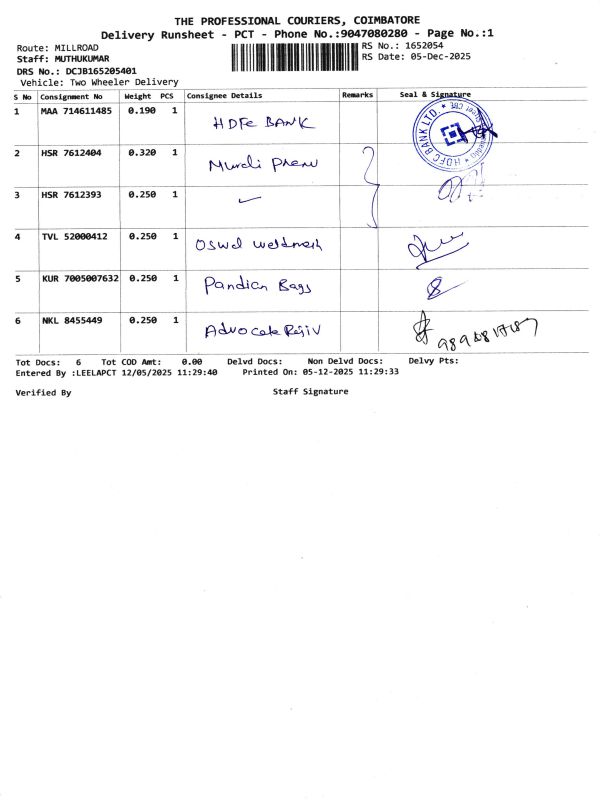 THE PROFESSIONAL COURIERS, COIMBATORE
Delivery Runsheet - PCT - Phone No.:9047080280 - Page No.:1
Route: MILLROAD
RS No.: 1652054
Staff: MUTHUKUMAR
RS Date: 05-Dec-2025
DRS No.: DCJB165205401
Vehicle: Two Wheeler Delivery
S No Consignment No Weight PCS Consignee Details Remarks Seal & Signature
1 MAA 714611485 0.190 1 HDFC BANK
HDFC BANK LTD.
2 HSR 7612404 0.320 1 Murali
3 HSR 7612393 0.250 1
4 TVL 52000412 0.250 1 Oswal
5 KUR 7005007632 0.250 1 Pandian Bags
6 NKL 8455449 0.250 1 Advocate
Tot Docs: 6 Tot COD Amt: 0.00 Delvd Docs: Non Delvd Docs: Delvy Pts:
Entered By :LEELAPCT 12/05/2025 11:29:40 Printed On: 05-12-2025 11:29:33
Verified By Staff Signature